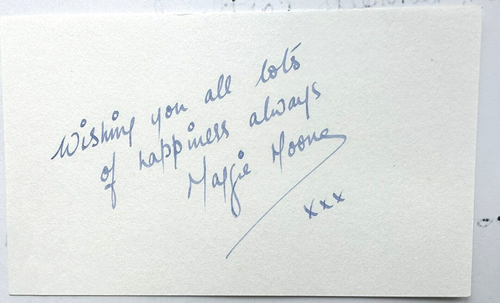 Wishing you all lots
of happiness always
Maggie Moone
xxx